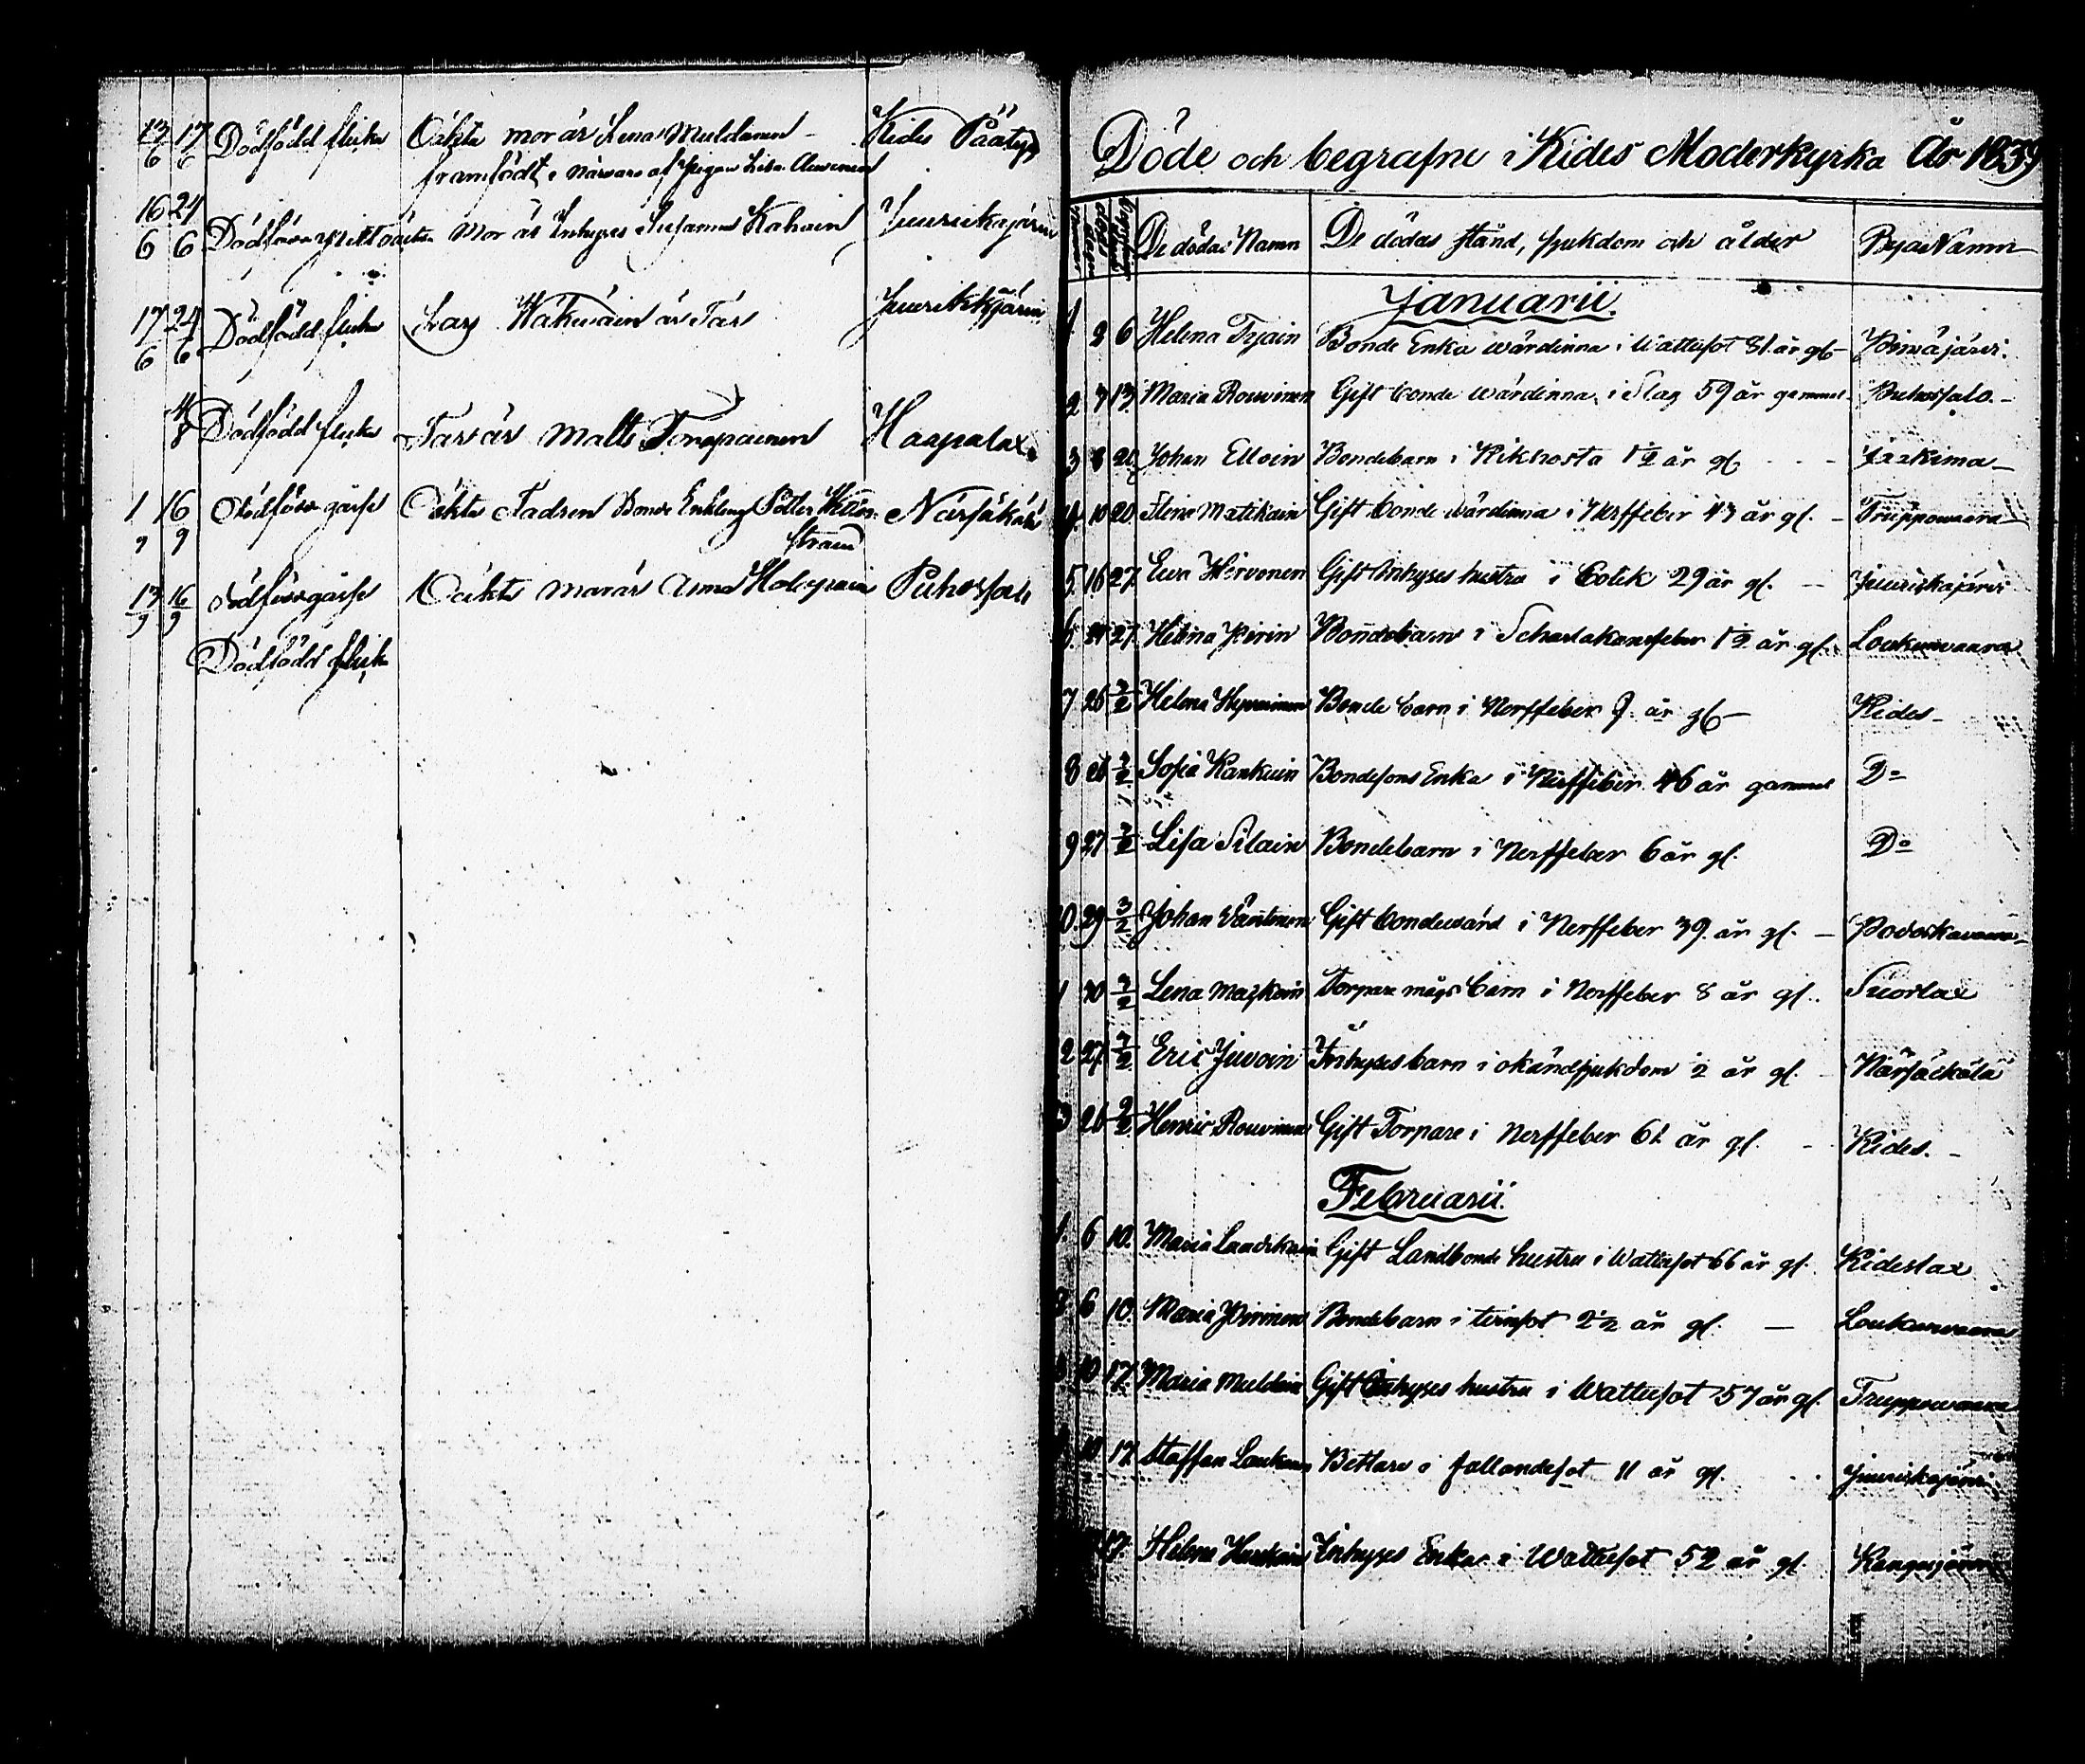 13/6 17/6 Dödfödd flicka Oäkta mor är Lena Muldanen - Kides Päätye
framfödt i närvaro af Pigan Lisa
16/6 24/6 Mor är Inhyses Susanna Kahain Juurikajärvi
17/6 24/6 Dödfödd flicka Lars är Far Juurikkajärvi
4/8 Dödfödd flicka Far är Matts Toropainen Haapalax
1/9 16/9 Dödföds gåsse Oäkta Fadren Bonde Enkling Petter Närsäkälä
strand
13/9 16/9 Dödföds gåsse Oäkta mor är Anna Holopain Puhossalo
Dödfödd flicka
Döde och begrafne i Kides Moderkyrka År 1839
De dödas Namn De dödas stånd, sjukdom och ålder Byars Namn
Januarii.
1 2 6 Helena Tyjäin Bonde Enka wärdinna i Wattusot 81 år gl - Piimäjärvi.
2 7 13 Maria Rouvinen Gift bonde wärdinna i Slag 59 år gammal - Puhossalo. -
3 8 20 Johan Elloin Bondebarn i Kikhosta 1 1/2 år gl - - - Jaakima -
4 10 20 Stina Matikain Gift bonde wärdinna i Nerffeber 43 år gl. - Truppowaara
5. 16 27. Ewa Hirvonen Gift Inhyses hustru i Colik 29 år gl. - Juurikajärvi
6. 21 27. Helena Pirin Bondebarn i Scharlakansfeber 1 1/2 år gl. Loukunwaara
7 26 3/2 Helena Hyvarinen Bonde barn i Nerffeber 7 år gl - Kides -
8 26 3/2 Sofia Kankuin Bondesons Enka i Nerffeber 46 år gammal Do
9 27 3/2 Lisa Silain Bondebarn i Nerffeber 6 år gl. Do
10. 29 3/2 Johan Wäntinen Gift bondewärd i Nerffeber 39 år gl. - Podoskawaara -
1 30 3/2 Lena Mazkain Torpare mågs barn i Nerffeber 8 år gl. Suorlax
2 27. 3/2 Eric Juvoin Inhyses barn i okänd sjukdom 1/2 år gl. - Närsäckälä
3 26 9/2 Henric Rouvinen Gift Torpare i Nerffeber 61 år gl. - Kides. -
Februarii.
1. 6 10. Maria Laasikain Gift Landbonde hustru i Wattusot 66 år gl. Kideslax
6 10. Maria Pirinen Bondebarn i tvinsot 2 1/2 år gl. - Loukunwaara
10 17. Maria Muldain Gift Inhyses hustru i Wattusot 57 år gl. Truppowaara
10 17. Staffan Laukanen Bettlare i fallandesot 11 år gl. Juurikajärvi
17. Helena Inhyses Enka i Wattusot 52 år gl. Kangasjärvi